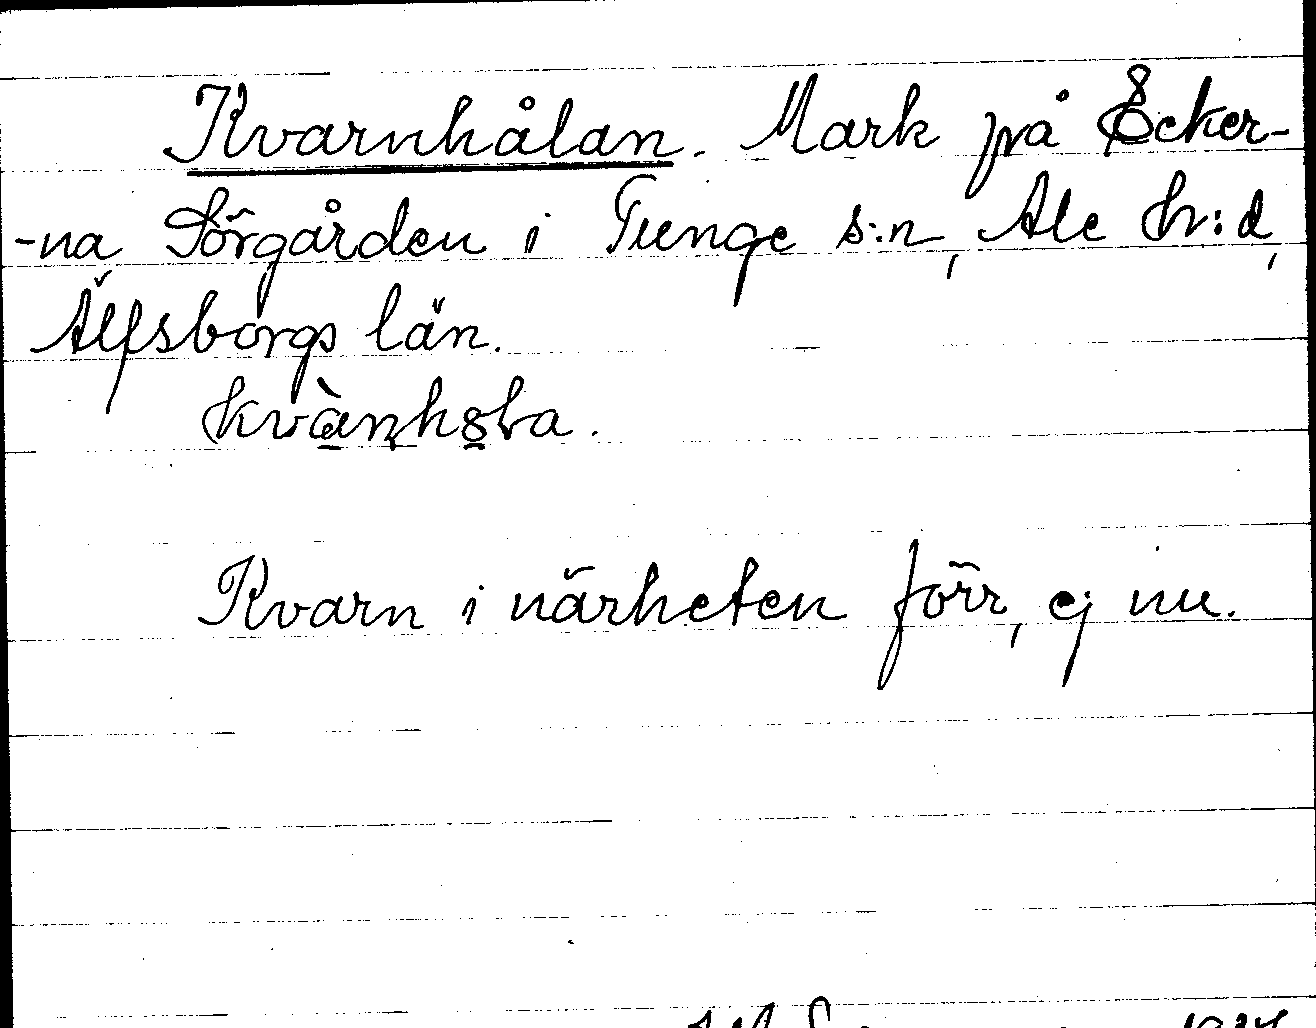 Kvarnhålan. Mark på Ecker-
-na Sörgården i Tunge s:n, Ale hr:d,
Älfsborgs län.
Kvarn i närheten förr, ej nu.